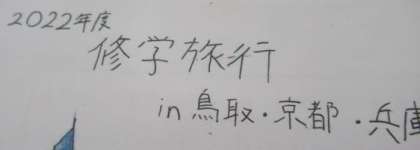 2022年度
修学旅行
in 鳥取・京都・兵庫